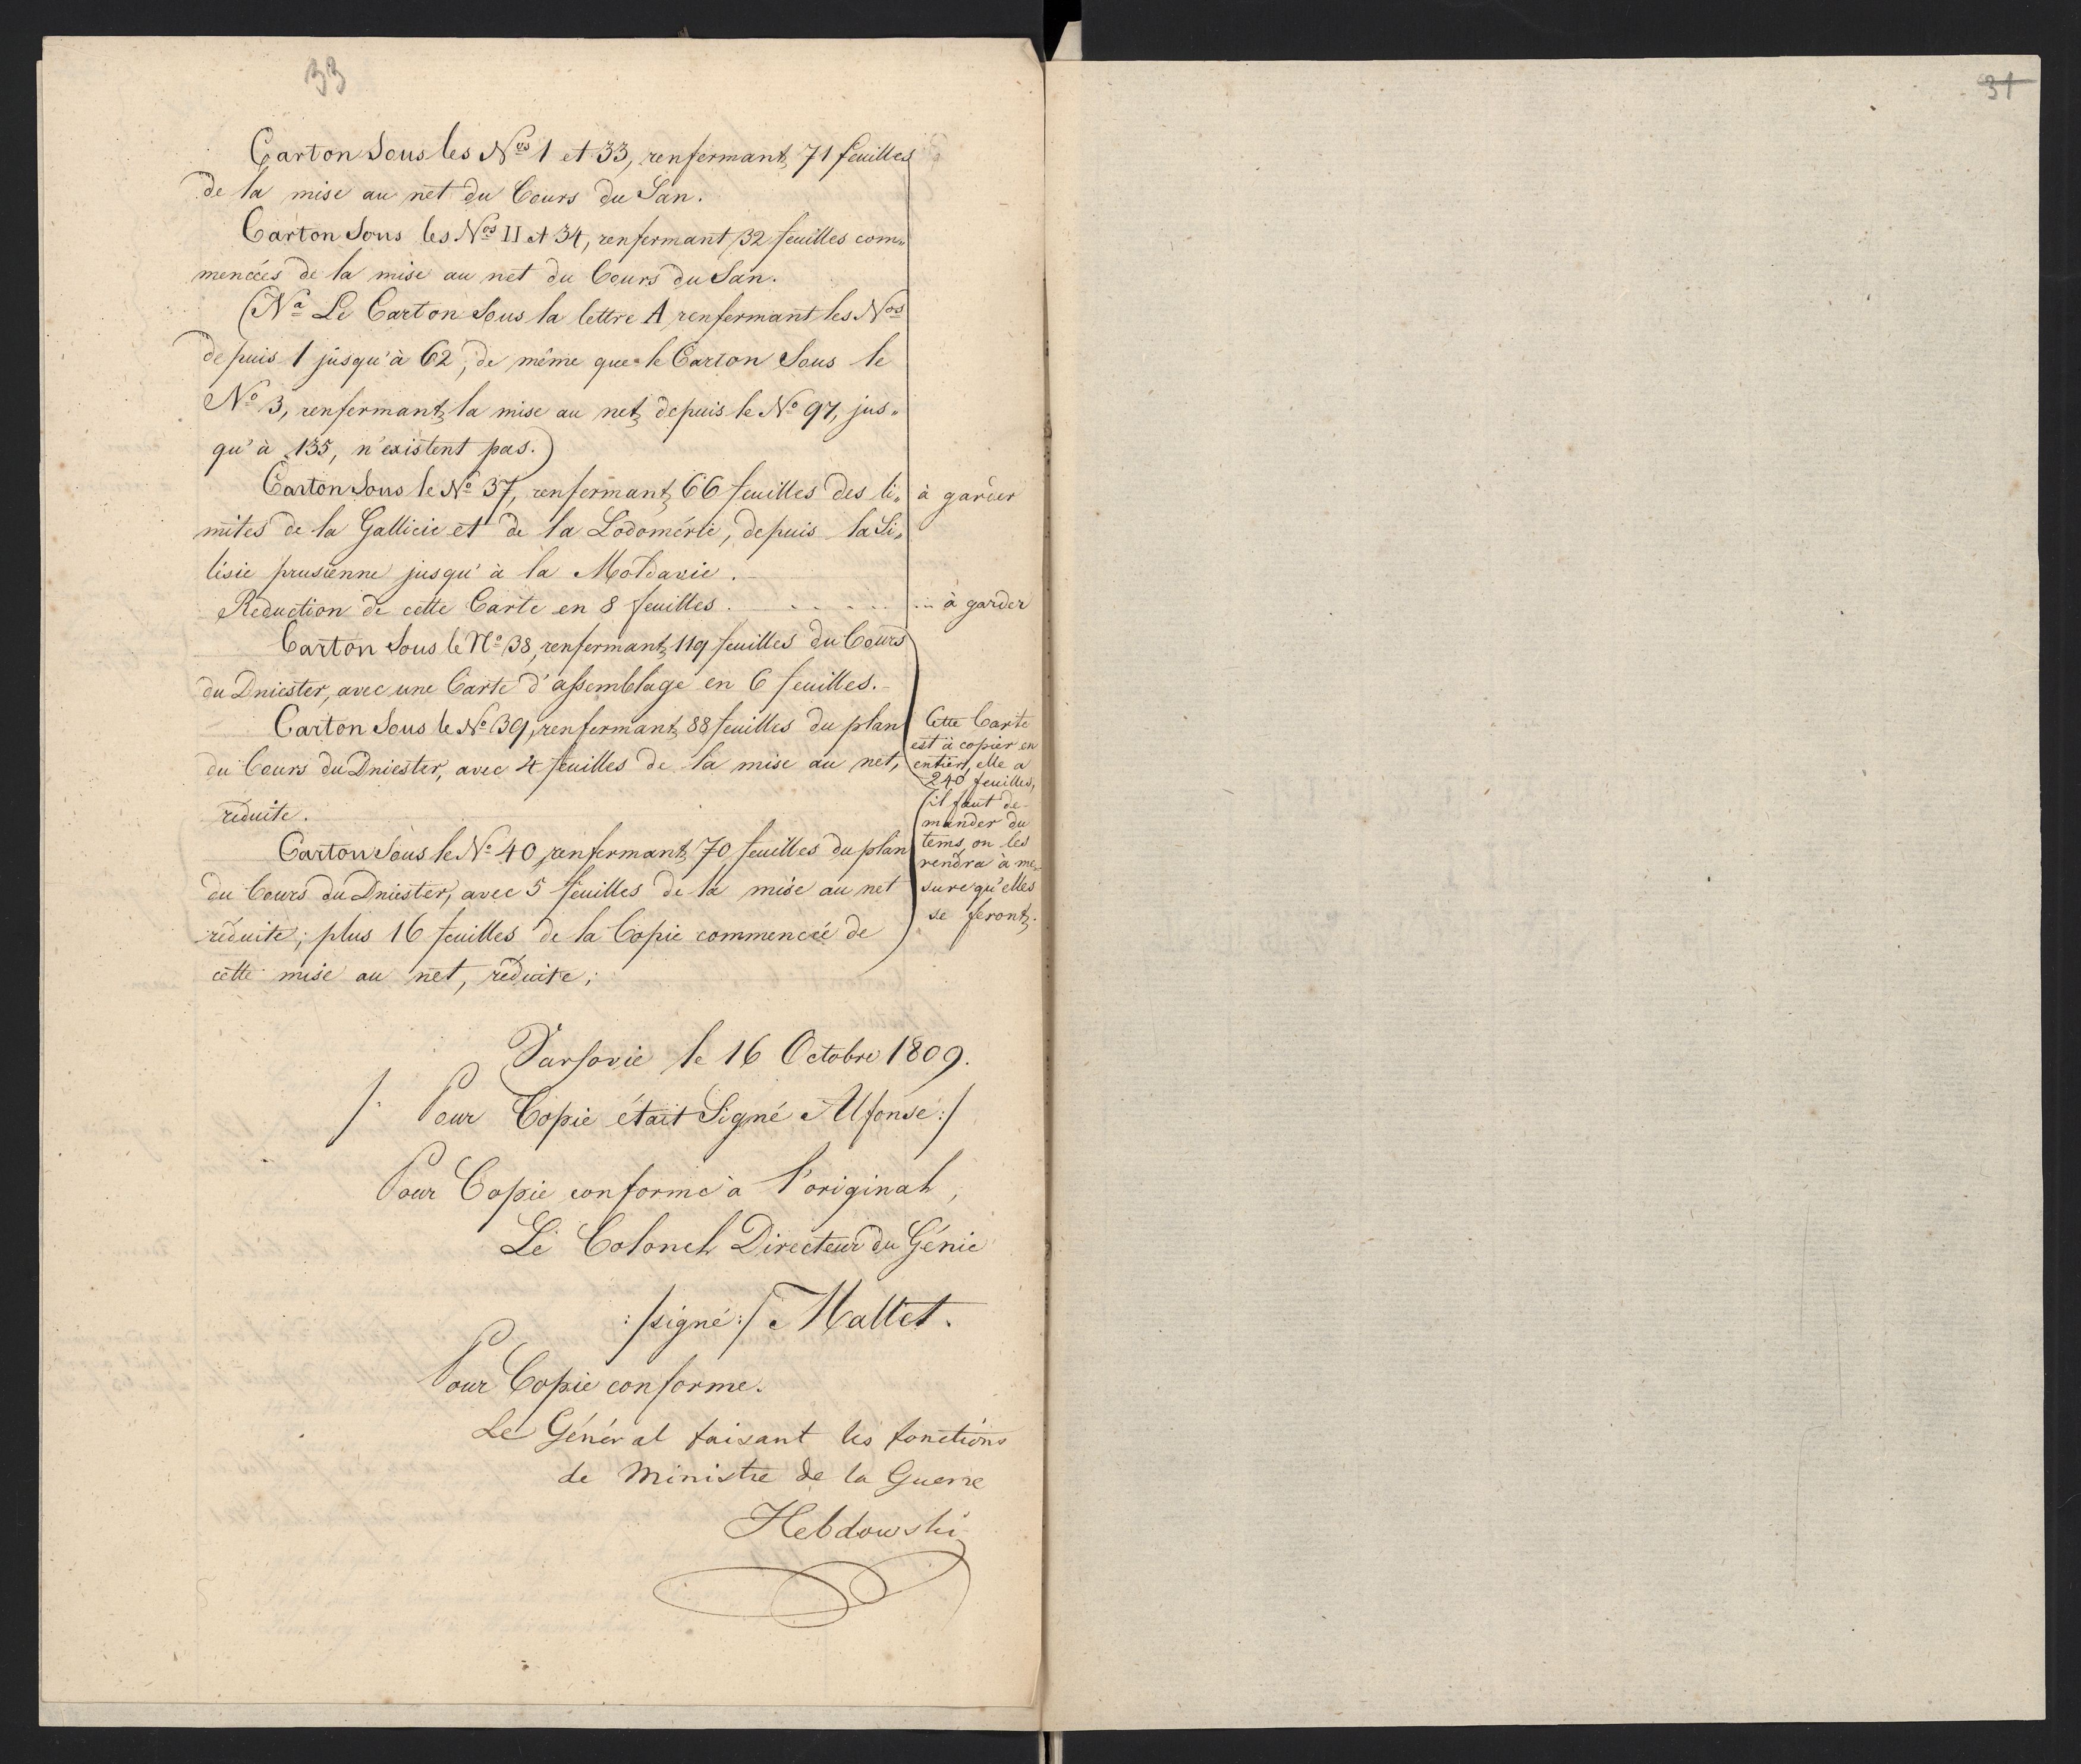 33
Carton Sous les Nos 1 et 33, renfermant 71 feuilles
de la mise au net du Cours du San.
Carton Sous les Nos II et 34, renfermant 32 feuilles com„
mencées de la mise au net du Cours du San.
(Na Le Carton Sous la lettre A renfermant les Nos
depuis 1 jusqu'à 62, de même que le Carton Sous le
No 3, renfermant la mise au net depuis le No 97, jus„
qu'à 135, n'existent pas.)
Carton Sous le No 37, renfermant 66 feuilles des li„ à garder
mites de la Gallicie et de la Lodomérie, depuis la Si„
lésie prusienne jusqu'à la Moldavie.
Reduction de cette Carte en 8 feuilles. . . . . . . . à garder
Carton Sous le No 38, renfermant 119 feuilles du Cours
du Dniester, avec une Carte d'assemblage en 6 feuilles.
Carton Sous le No 39, renfermant 88 feuilles du plan
du Cours du Dniester, avec 4 feuilles de la mise au net,
réduite.
Carton Sous le No 40 renfermant 70 feuilles du plan
du Cours du Dniester, avec 5 feuilles de la mise au net
réduite; plus 16 feuilles de la Copie commencée de
cette mise au net, réduite;
Cette Carte
est à copier en
entier, elle a
240 feuilles,
(il faut de-
mander du
tems, on les
rendra à me-
sure qu'elles
se feront.
Varsovie le 16 Octobre 1809.
/: Pour Copie était Signé Alfonse :/
Pour Copie conforme à l'original,
Le Colonel Directeur du Génie
:/signé:/ Mallet.
Pour Copie conforme.
Le Général faisant les fonctions
de Ministre de la Guerre
Hebdowski
31